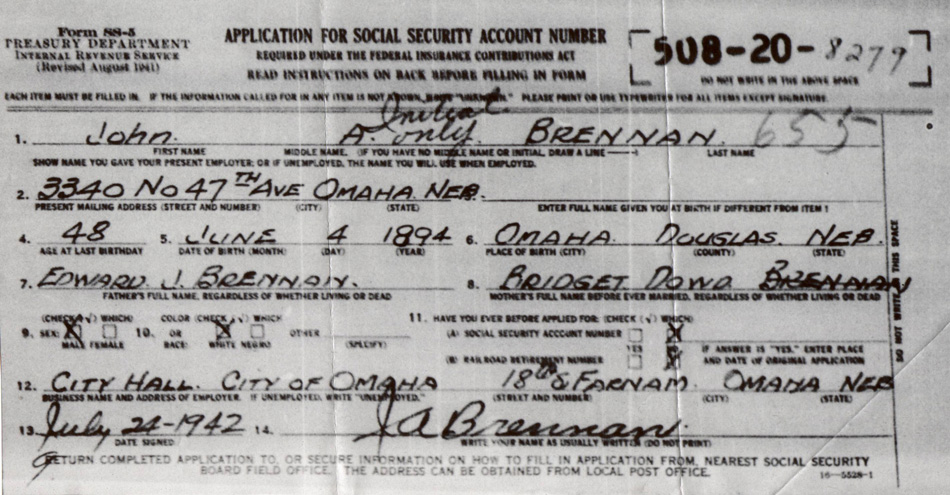 Form SS-5
TREASURY DEPARTMENT
INTERNAL REVENUE SERVICE
(Revised August 1941)
APPLICATION FOR SOCIAL SECURITY ACCOUNT NUMBER
REQUIRED UNDER THE FEDERAL INSURANCE CONTRIBUTIONS ACT
READ INSTRUCTIONS ON BACK BEFORE FILLING IN FORM
508-20-8279
DO NOT WRITE IN THE ABOVE SPACE
EACH ITEM MUST BE FILLED IN. IF THE INFORMATION CALLED FOR IN ANY ITEM IS NOT KNOWN, WRITE "UNKNOWN." PLEASE PRINT OR USE TYPEWRITER FOR ALL ITEMS EXCEPT SIGNATURE.
Initial
1. John. A. only. BRENNAN. 655
FIRST NAME MIDDLE NAME. (IF YOU HAVE NO MIDDLE NAME OR INITIAL, DRAW A LINE ——) LAST NAME
SHOW NAME YOU GAVE YOUR PRESENT EMPLOYER; OR IF UNEMPLOYED, THE NAME YOU WILL USE WHEN EMPLOYED.
2. 3340 No 47TH AVE OMAHA. NEB.
PRESENT MAILING ADDRESS (STREET AND NUMBER) (CITY) (STATE) ENTER FULL NAME GIVEN YOU AT BIRTH IF DIFFERENT FROM ITEM 1
4. 48 5. JUNE 4 1894 6. OMAHA. DOUGLAS. NEB.
AGE AT LAST BIRTHDAY DATE OF BIRTH (MONTH) (DAY) (YEAR) PLACE OF BIRTH (CITY) (COUNTY) (STATE)
7. EDWARD J. BRENNAN. 8. BRIDGET DOWD BRENNAN
FATHER'S FULL NAME, REGARDLESS OF WHETHER LIVING OR DEAD MOTHER'S FULL NAME BEFORE EVER MARRIED, REGARDLESS OF WHETHER LIVING OR DEAD
(CHECK √) WHICH) COLOR (CHECK √) WHICH 11. HAVE YOU EVER BEFORE APPLIED FOR: (CHECK (√) WHICH)
9. SEX: X 10. OR RACE: X OTHER (A) SOCIAL SECURITY ACCOUNT NUMBER X
MALE FEMALE WHITE NEGRO (SPECIFY) YES NO IF ANSWER IS "YES," ENTER PLACE
(B) RAILROAD RETIREMENT NUMBER X AND DATE OF ORIGINAL APPLICATION
12. CITY HALL. CITY OF OMAHA 18th & FARNAM. OMAHA NEB
BUSINESS NAME AND ADDRESS OF EMPLOYER. IF UNEMPLOYED, WRITE "UNEMPLOYED." (STREET AND NUMBER) (CITY) (STATE)
13. July 24-1942 14. J A Brennan.
DATE SIGNED WRITE YOUR NAME AS USUALLY WRITTEN (DO NOT PRINT)
RETURN COMPLETED APPLICATION TO, OR SECURE INFORMATION ON HOW TO FILL IN APPLICATION FROM, NEAREST SOCIAL SECURITY
BOARD FIELD OFFICE. THE ADDRESS CAN BE OBTAINED FROM LOCAL POST OFFICE.
16—5528-1
DO NOT WRITE IN THIS SPACE